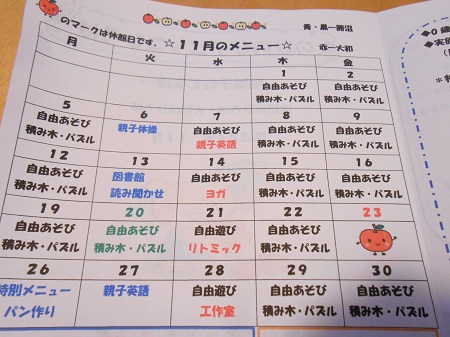 のマークは休館日です。 ☆11月のメニュー☆
青・黒ー勝沼
赤ー大和
月 火 水 木 金
1 2
自由あそび 自由あそび
積み木・パズル 積み木・パズル
5 6 7 8 9
自由あそび 親子体操 自由あそび 自由あそび 自由あそび
積み木・パズル 親子英語 積み木・パズル 積み木・パズル
12 13 14 15 16
自由あそび 図書館 自由あそび 自由あそび 自由あそび
積み木・パズル 読み聞かせ ヨガ 積み木・パズル 積み木・パズル
19 20 21 22 23
自由あそび 自由あそび 自由遊び 自由あそび
積み木・パズル 積み木・パズル リトミック 積み木・パズル
26 27 28 29 30
特別メニュー 親子英語 自由遊び 自由あそび 自由あそび
パン作り 工作室 積み木・パズル 積み木・パズル